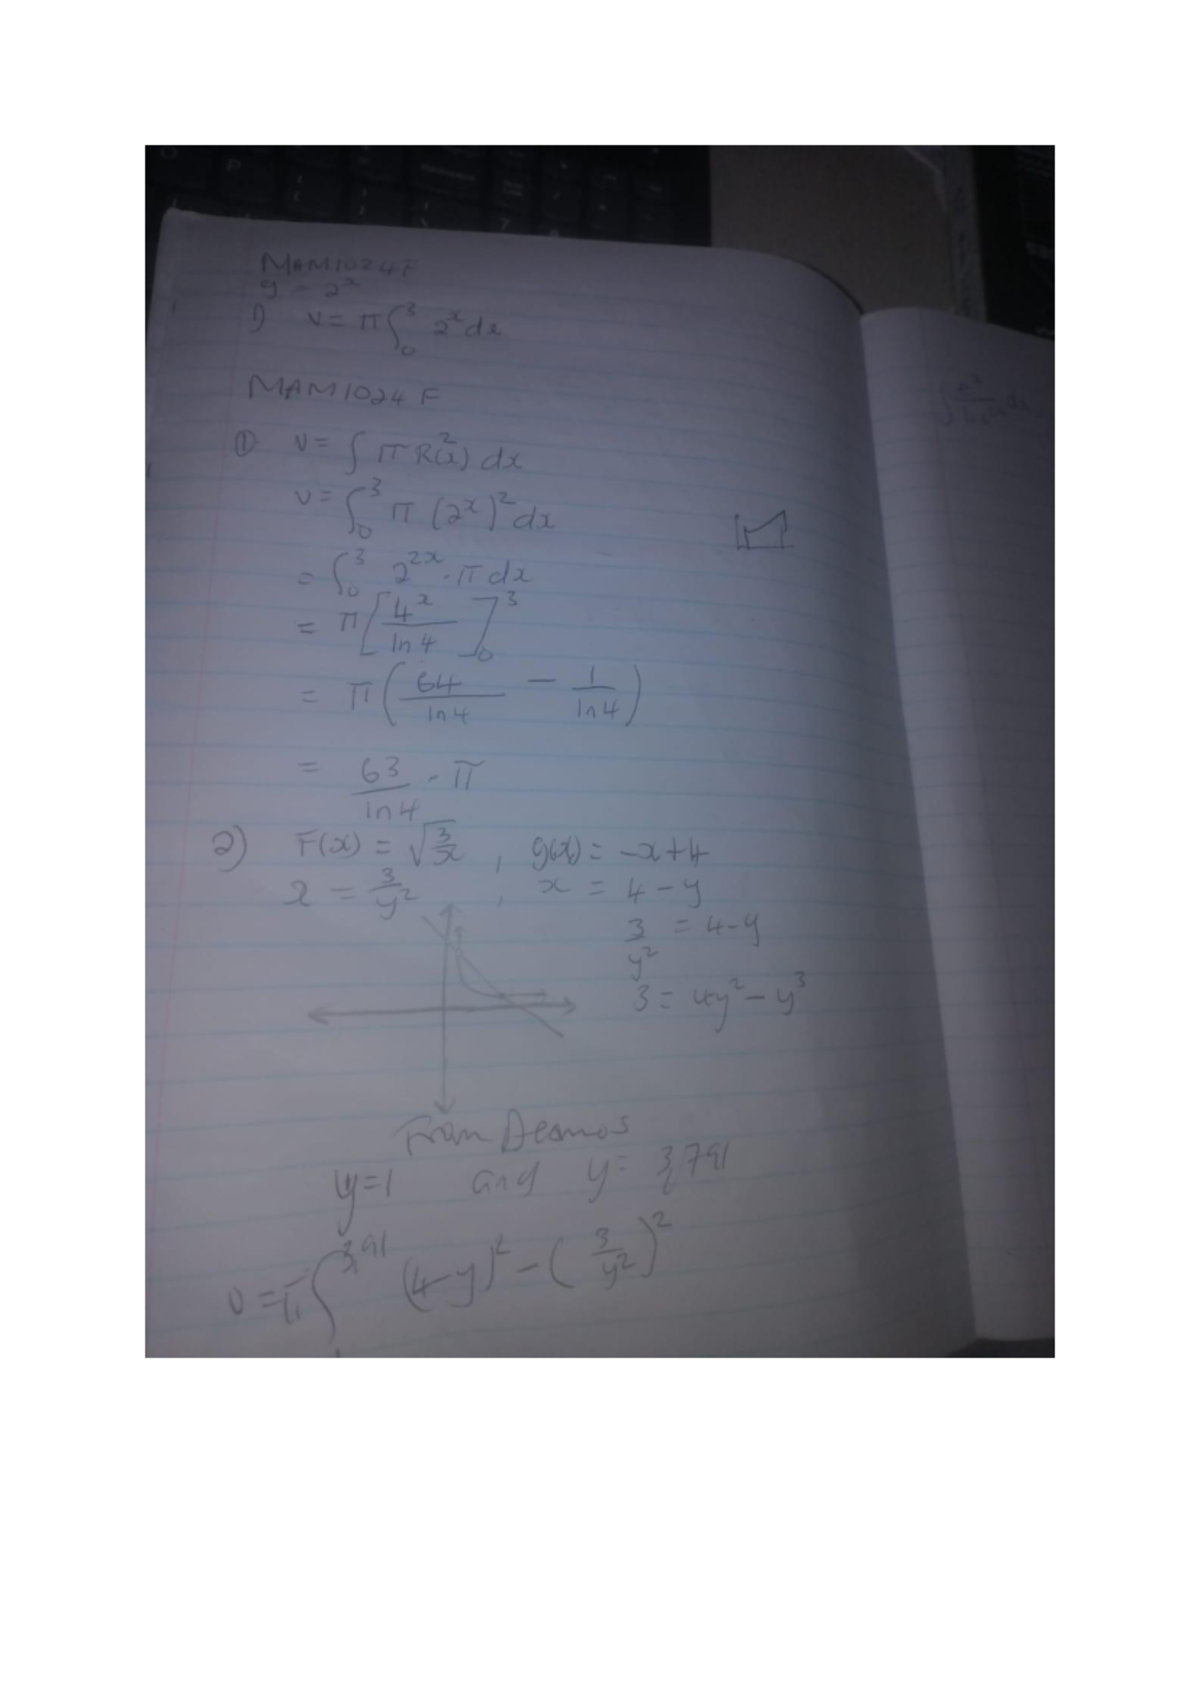 MAM1024F
y = 2^x
1) V = π∫₀³ 2^x dx
MAM1024F
① V = ∫ π R(x)² dx
V = ∫₀³ π (2^x)² dx
= ∫₀³ 2^2x · π dx
= π[4^x / ln4]₀³
= π(64/ln4 − 1/ln4)
= 63/ln4 · π
2) F(x) = √(3/x) , g(x) = −x+4
x = 3/y² , x = 4 − y
3/y² = 4−y
3 = 4y² − y³
From Desmos
y=1 and y= 3,791
V = π∫₁^3,91 (4−y)² − (3/y²)²